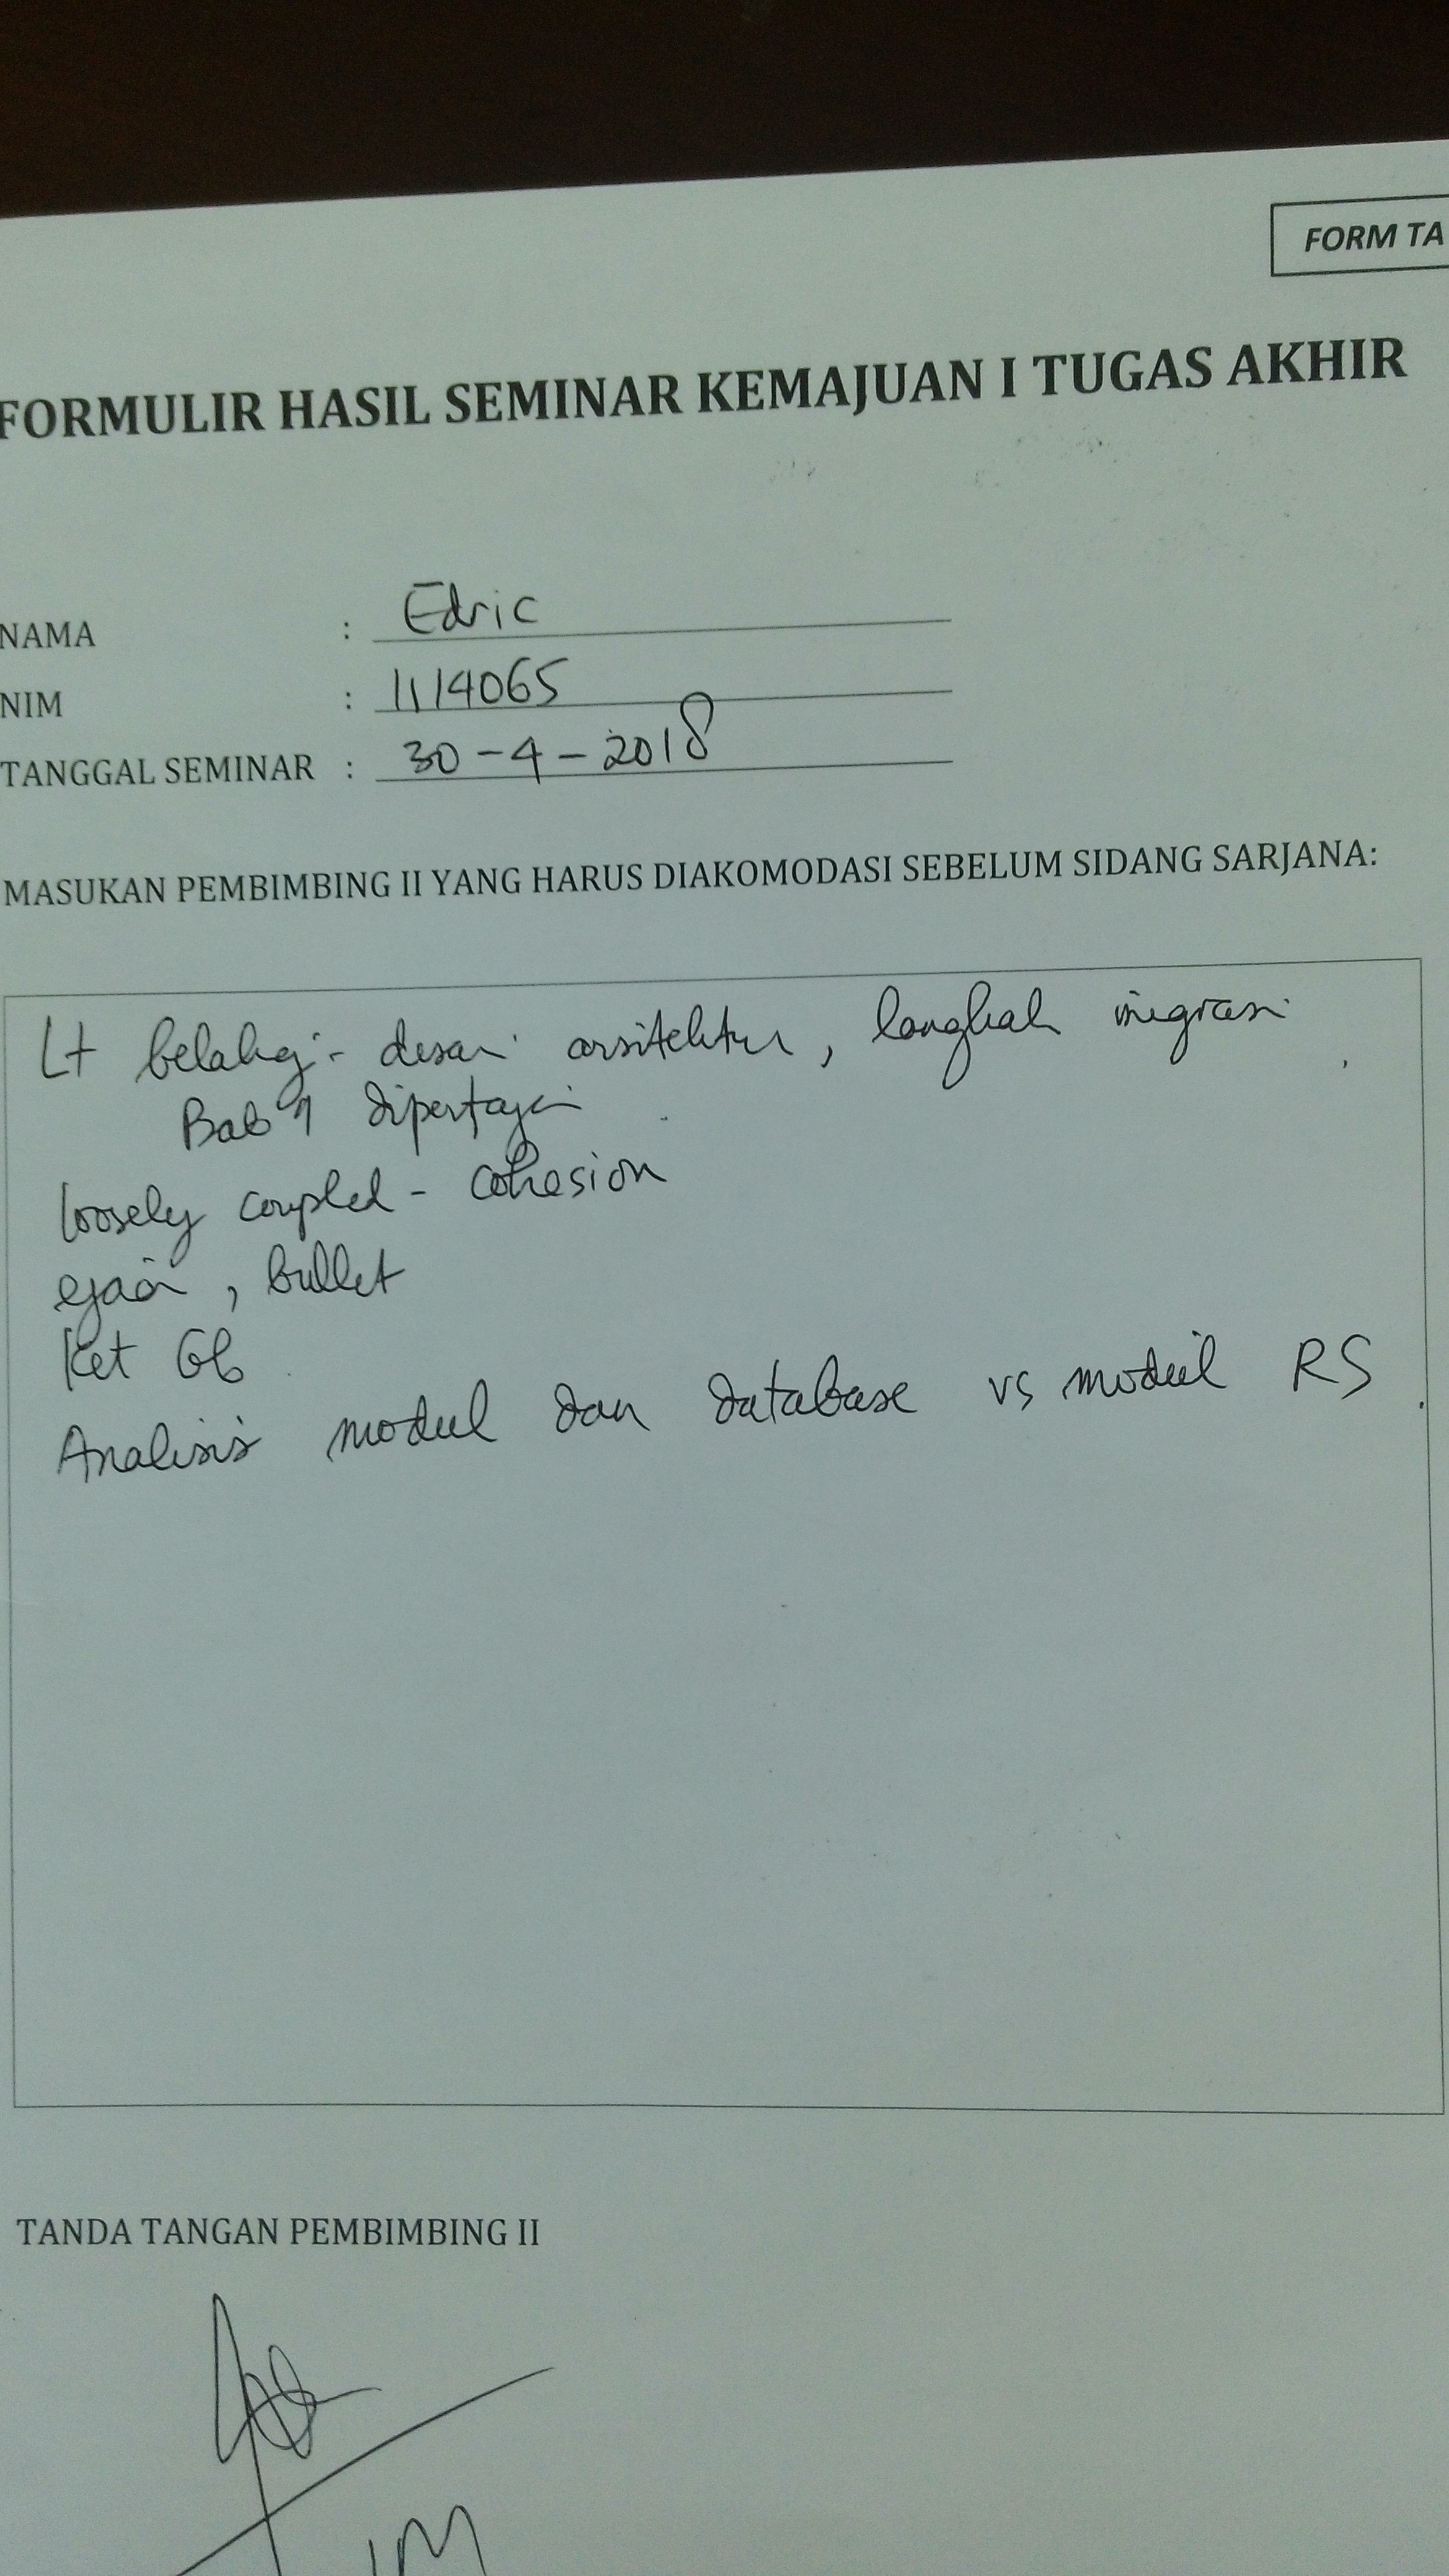 FORM TA
FORMULIR HASIL SEMINAR KEMAJUAN I TUGAS AKHIR
NAMA : Edric
NIM : 1114065
TANGGAL SEMINAR : 30-4-2018
MASUKAN PEMBIMBING II YANG HARUS DIAKOMODASI SEBELUM SIDANG SARJANA:
Lt belakg - desain arsitektur, langkah migrasi
Bab 1 dipertajam
loosely coupled - cohesion
ejaan, bullet
Ket Gb
Analisis modul dan database vs modul RS
TANDA TANGAN PEMBIMBING II